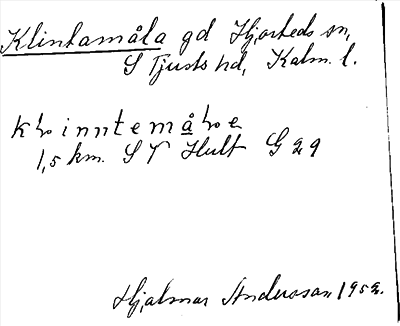 Klintamåla gd Hjorteds sn,
S Tjusts hd, Kalm. l.
1,5 km. SV Hult G 29
Hjalmar Andersson 1952.